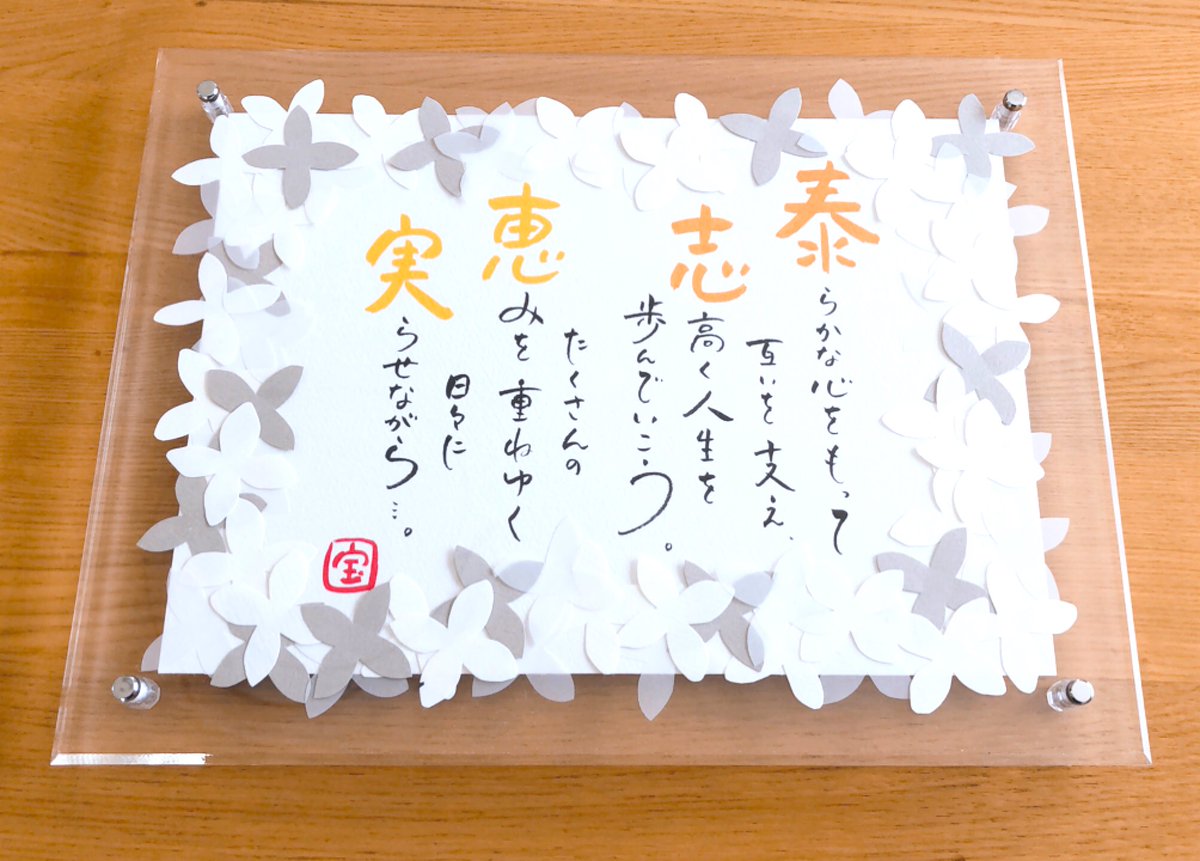 泰らかな心をもって
互いを支え、
志高く人生を
歩んでいこう。
たくさんの
恵みを重ねゆく
日々に
実らせながら…。
宝